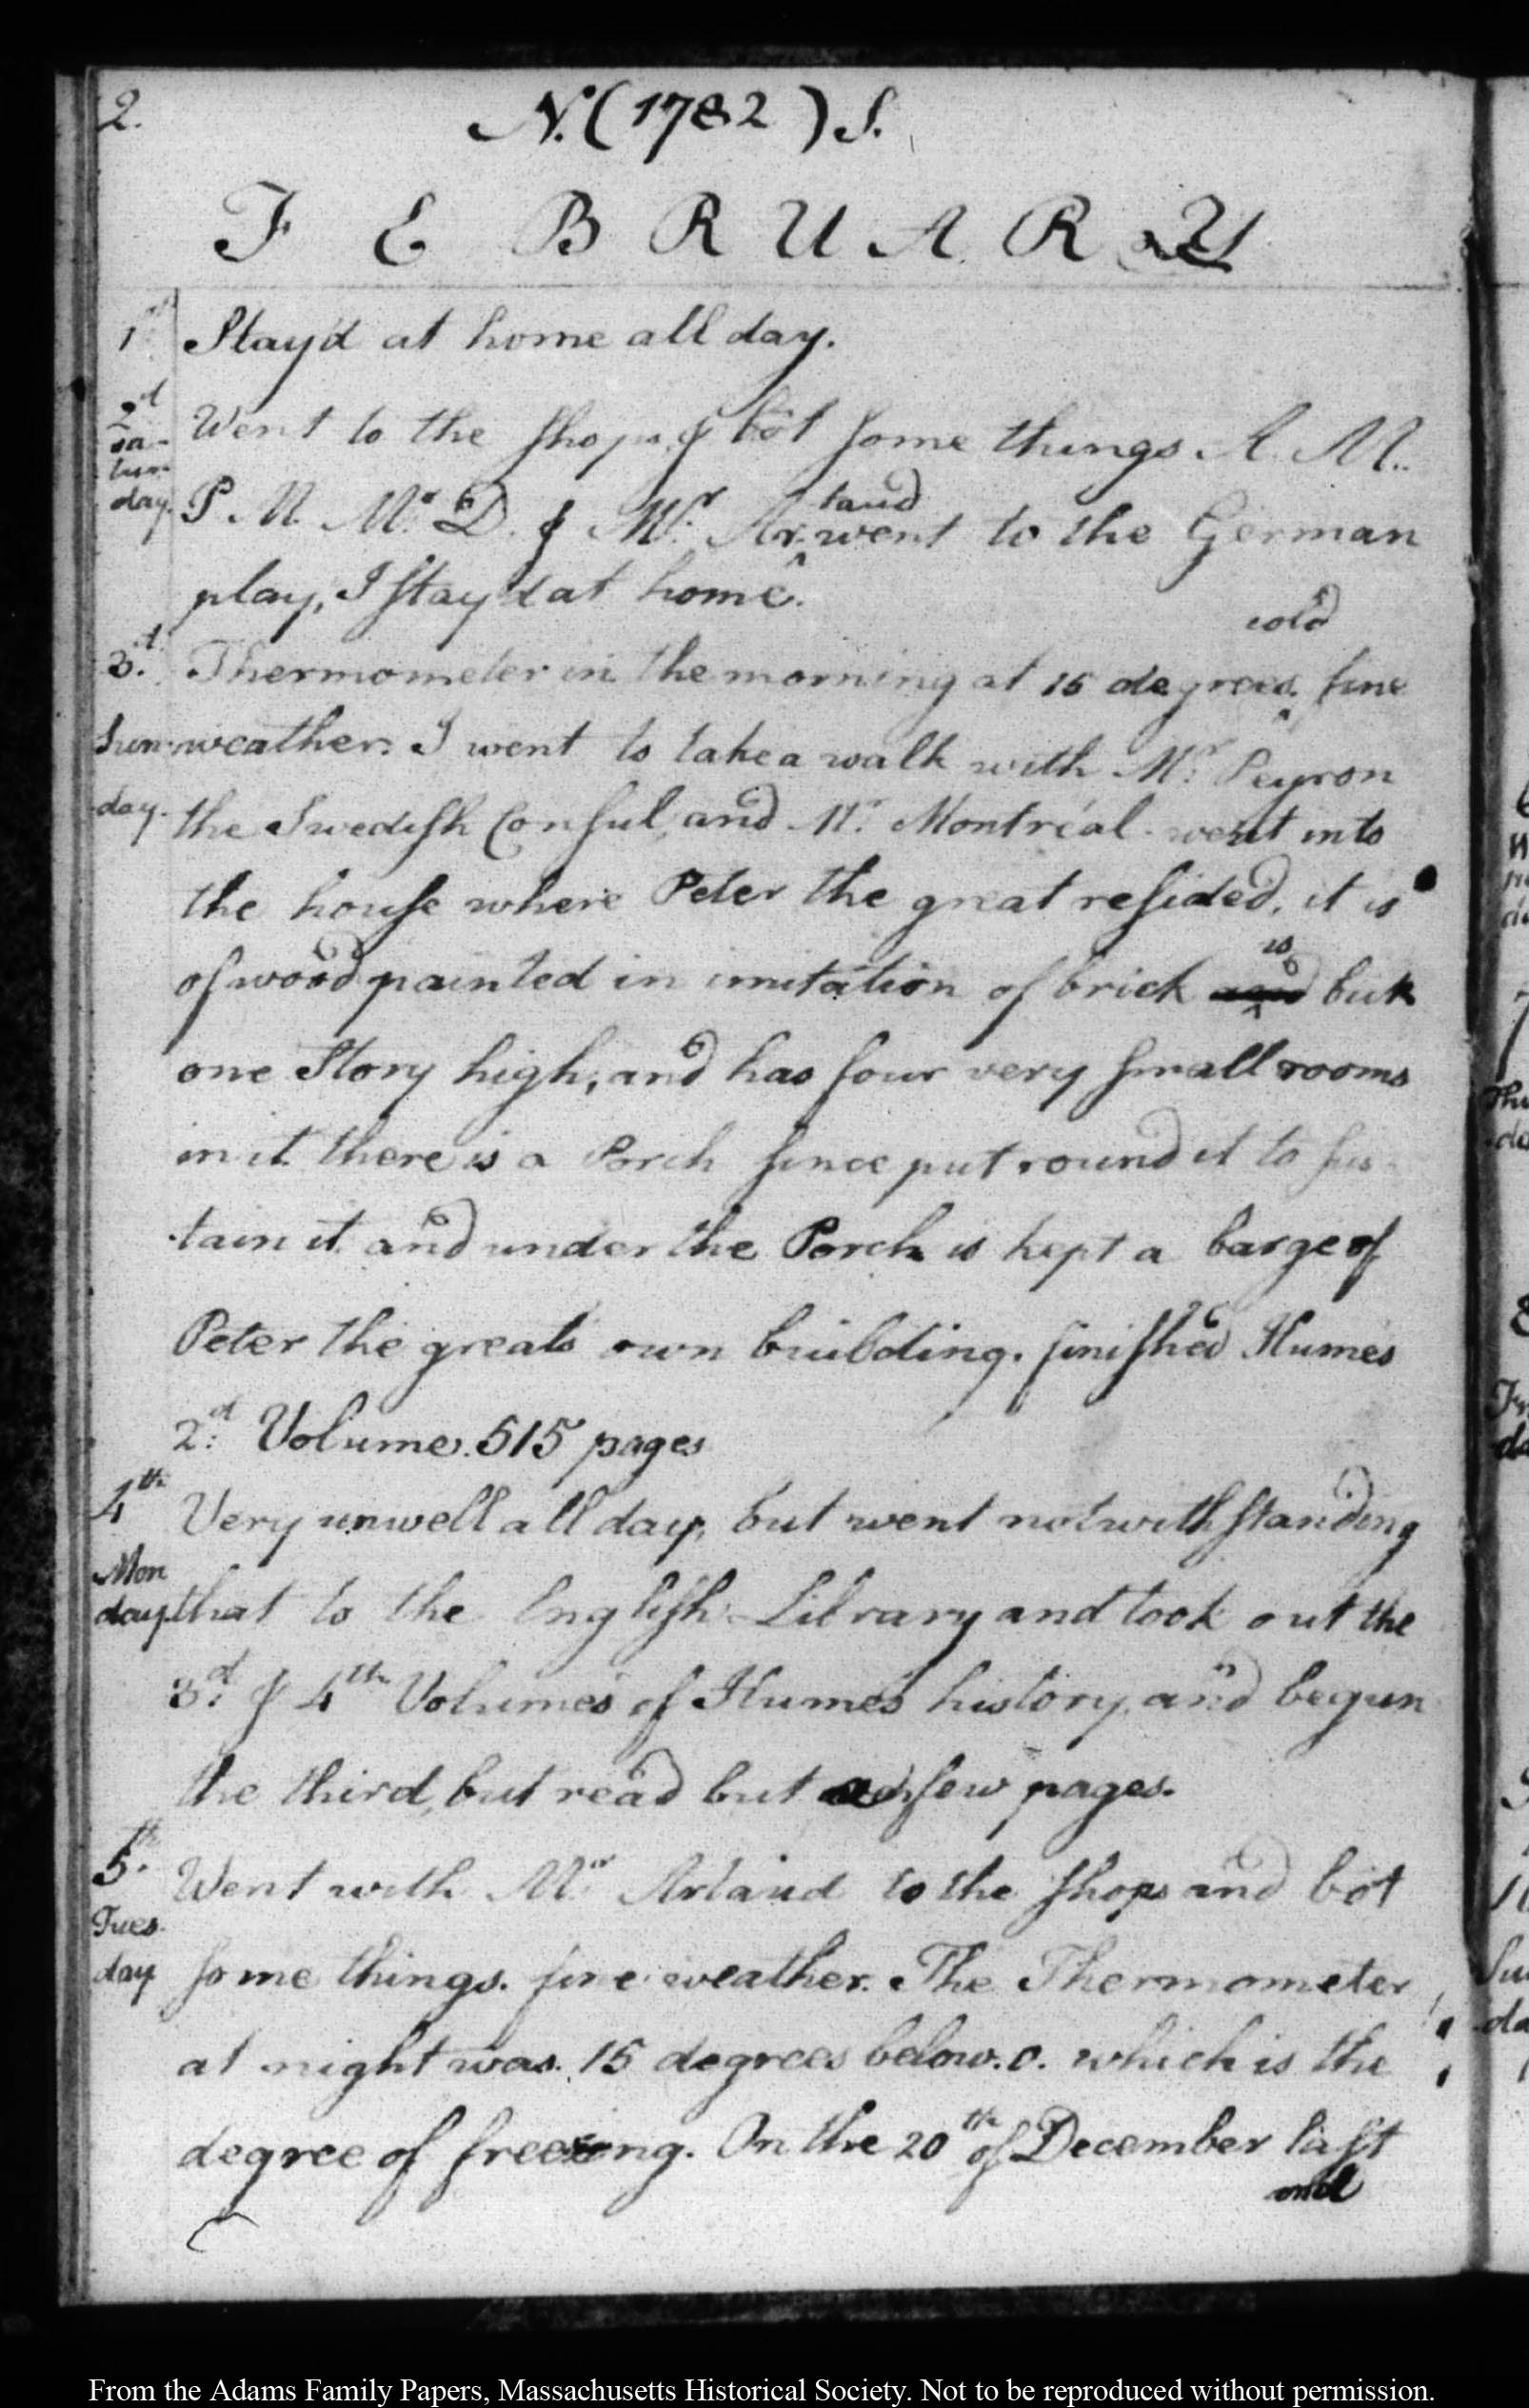 2.
N. (1782) S.
F E B R U A R Y
1st Stay'd at home all day.
2d Went to the shops & bot some things A. M.
Sa-
tur-
day. P. M. Mr. D. & Mr. Ar^taud went to the German
play, I stay'd at home.
3d. Thermometer in the morning at 15 degrees ^cold fine
Sun- weather. I went to take a walk with Mr. Peyron
day. the Swedish Consul, and Mr. Montréal. went into
the house where Peter the great resided, it is
of wood painted in imitation of brick and ^is but
one Story high, and has four very small rooms
in it there is a Porch since put round it to sus-
tain it and under the Porch is kept a barge of
Peter the greats own building. finished Humes
2d: Volume. 515 pages
4th Very unwell all day, but went notwithstanding
Mon
day. that to the English Library and took out the
3d: & 4th Volumes of Humes history, and begun
the third, but read but a few pages.
5th. Went with Mr Artaud to the shops and bot
Tues
day some things. fine weather. The Thermometer
at night was. 15 degrees below. 0. which is the
degree of freezing. On the 20th of December last
and
From the Adams Family Papers, Massachusetts Historical Society. Not to be reproduced without permission.